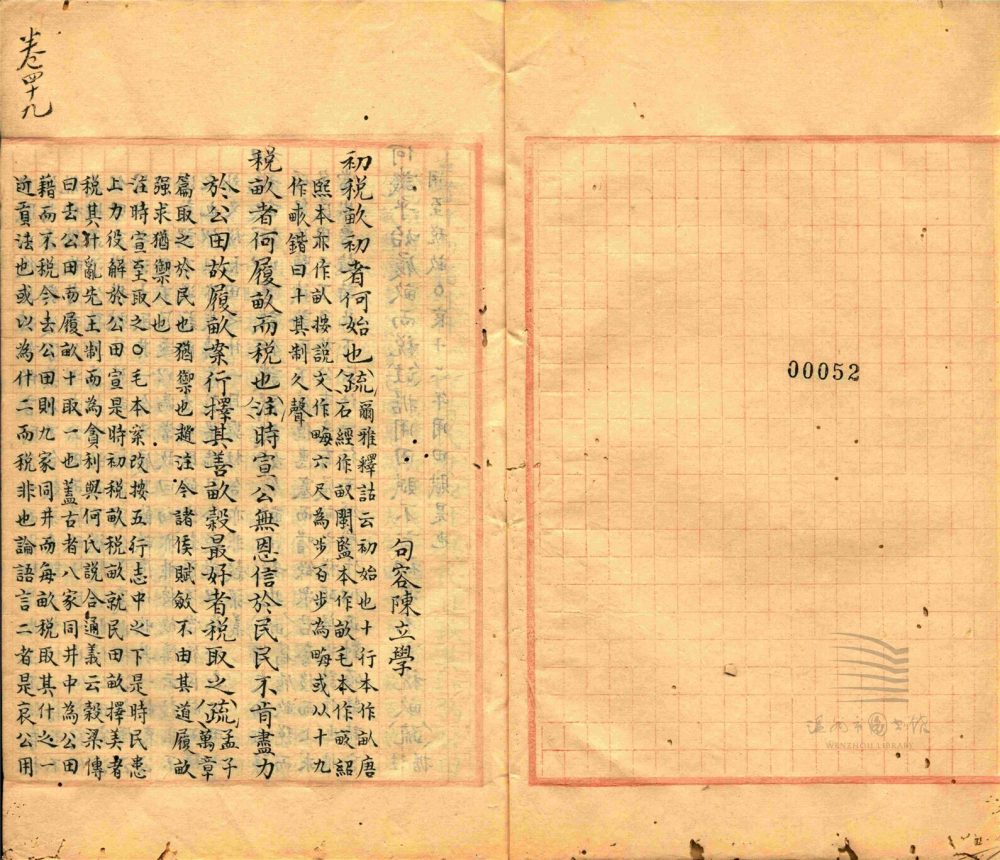 00052
溫州市圖書館
WENZHOU LIBRARY
卷四十九
句容陳立學
初稅畝初者何始也疏爾雅釋詁云初始也十行本作畝唐
石經作畝閩監本作畝毛本作畝紹
熙本亦作畝按説文作畮六尺為步百步為畮或以十九
作畝鍇曰十其制久聲
稅畝者何履畝而税也注時宣公無恩信於民民不肯盡力
於公田故履畝案行擇其善畝穀最好者税取之疏孟子
萬章
篇取之於民也猶禦也趙注今諸侯賦斂不由其道履畝
强求猶禦人也
注時宣至取之〇毛本案改按五行志中之下是時民患
上力役解於公田宣是時初税畝税畝就民田畝擇美者
税其什亂先王制而為貪利與何氏說合通義云穀梁傳
曰去公田而履畝十取一也蓋古者八家同井中為公田
藉而不税今去公田則九家同井而每畝税取其什之一
近貢法也或以為什二而税非也論語言二者是哀公用